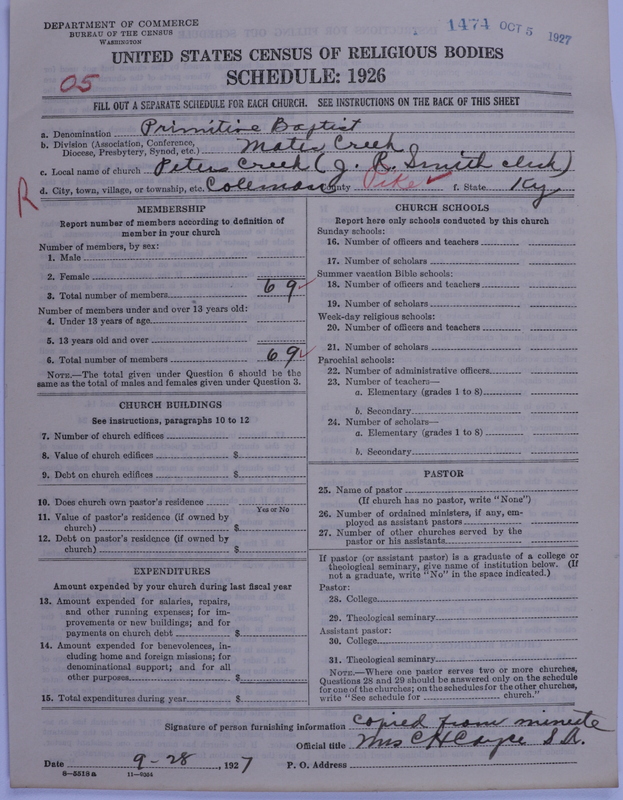 DEPARTMENT OF COMMERCE
BUREAU OF THE CENSUS
WASHINGTON
1474 OCT 5 1927
UNITED STATES CENSUS OF RELIGIOUS BODIES
SCHEDULE: 1926
05
FILL OUT A SEPARATE SCHEDULE FOR EACH CHURCH. SEE INSTRUCTIONS ON THE BACK OF THIS SHEET
a. Denomination Primitive Baptist
b. Division (Association, Conference, Diocese, Presbytery, Synod, etc.) Mates Creek
c. Local name of church Peters Creek (J. R. Smith clerk)
d. City, town, village, or township, etc. Coleman County Pike f. State Ky
R
MEMBERSHIP
Report number of members according to definition of
member in your church
Number of members, by sex:
1. Male
2. Female
3. Total number of members 69
Number of members under and over 13 years old:
4. Under 13 years of age
5. 13 years old and over
6. Total number of members 69
NOTE.—The total given under Question 6 should be the
same as the total of males and females given under Question 3.
CHURCH BUILDINGS
See instructions, paragraphs 10 to 12
7. Number of church edifices
8. Value of church edifices $
9. Debt on church edifices $
10. Does church own pastor's residence
Yes or No
11. Value of pastor's residence (if owned by
church) $
12. Debt on pastor's residence (if owned by
church) $
EXPENDITURES
Amount expended by your church during last fiscal year
13. Amount expended for salaries, repairs,
and other running expenses; for im-
provements or new buildings; and for
payments on church debt $
14. Amount expended for benevolences, in-
cluding home and foreign missions; for
denominational support; and for all
other purposes $
15. Total expenditures during year $
CHURCH SCHOOLS
Report here only schools conducted by this church
Sunday schools:
16. Number of officers and teachers
17. Number of scholars
Summer vacation Bible schools:
18. Number of officers and teachers
19. Number of scholars
Week-day religious schools:
20. Number of officers and teachers
21. Number of scholars
Parochial schools:
22. Number of administrative officers
23. Number of teachers—
a. Elementary (grades 1 to 8)
b. Secondary
24. Number of scholars—
a. Elementary (grades 1 to 8)
b. Secondary
PASTOR
25. Name of pastor
(If church has no pastor, write "None")
26. Number of ordained ministers, if any, em-
ployed as assistant pastors
27. Number of other churches served by the
pastor or his assistants
If pastor (or assistant pastor) is a graduate of a college or
theological seminary, give name of institution below. (If
not a graduate, write "No" in the space indicated.)
Pastor:
28. College
29. Theological seminary
Assistant pastor:
30. College
31. Theological seminary
NOTE.—Where one pastor serves two or more churches,
Questions 28 and 29 should be answered only on the schedule
for one of the churches; on the schedules for the other churches,
write "See schedule for church."
Signature of person furnishing information Copied from minute
Official title Mrs C H Cayce S. A.
Date 9-28, 1927 P. O. Address
8—5518a 11—9054